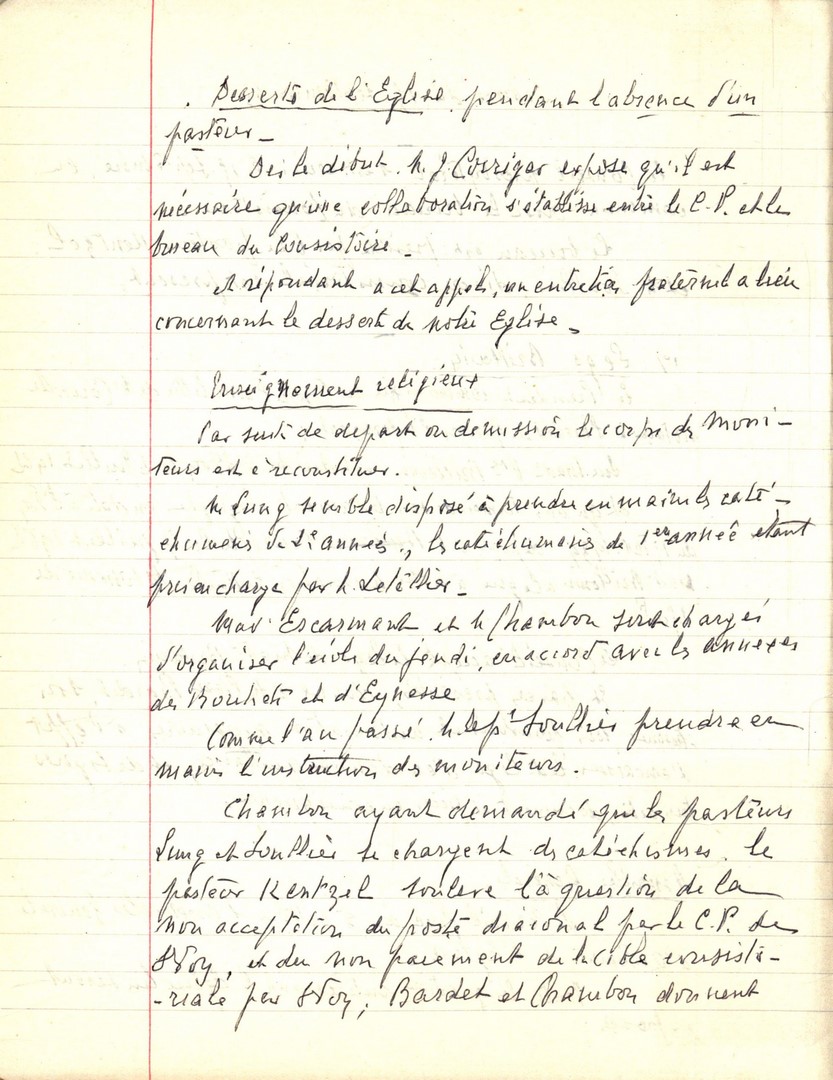 . Desserte de l'Eglise pendant l'absence d'un
pasteur _
Dès le début M. J. Corrigar expose qu'il est
nécessaire qu'une collaboration s'établisse entre le C.P. et le
bureau du Consistoire _
et répondant a cet appel, un entretien fraternel a lieu
concernant le dessert de notre Eglise _
Enseignement religieux
Par suite de départ ou démission le corps de moni-
teurs est à reconstituer.
M. Lung semble disposé à prendre en main les caté-
chumènes de 2e année, les catéchumènes de 1ere année étant
pris en charge par M. Letellier _
Escarmant et M. Chambon sont chargés
d'organiser l'école du jeudi, en accord avec les annexes
des Bouhets et d'Eynesse
Comme l'an passé, M. le pr Soulliès prendra en
mains l'instruction des moniteurs.
Chambon ayant demandé que les pasteurs
Lung et Soulliès se chargent des catéchismes, le
pasteur Kentzel soulève là question de la
non acceptation du poste diaconal par le C.P. de
Ste Foy, et du non paiement de la cible consisto-
-riale par Ste Foy; Bardet et Chambon donnent